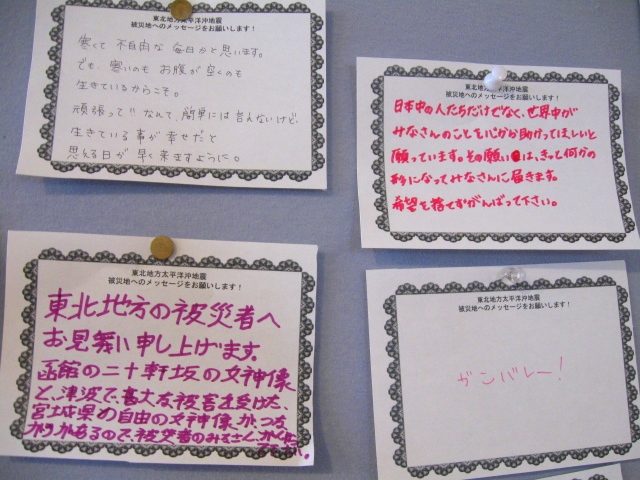 東北地方太平洋沖地震
被災地へのメッセージをお願いします！
寒くて 不自由な 毎日かと思います。
でも、寒いのも お腹が空くのも
生きているからこそ。
頑張って"なんて、簡単には言えないけど
生きている事が幸せだと
思える日が早く来ますように。
東北地方太平洋沖地震
被災地へのメッセージをお願いします！
日本中の人たちだけでなく、世界中が
みなさんのことを心から助かってほしいと
願っています。その願いは、きっと何かの
形になってみなさんに届きます。
希望を捨てずがんばって下さい。
東北地方太平洋沖地震
被災地へのメッセージをお願いします！
東北地方の被災者へ
お見舞い申し上げます。
函館の二十軒坂の女神像
と、津波で、甚大な被害を受けた、
宮城県の自由の女神像が、つな
がりがあるので、被災者のみなさん、
東北地方太平洋沖地震
被災地へのメッセージをお願いします！
ガンバレー！